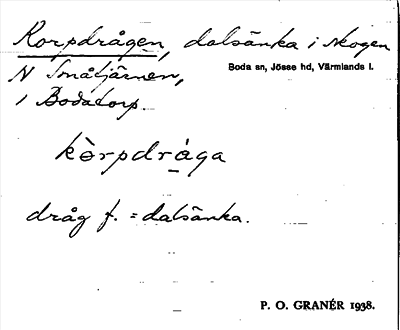 Korpdrågen, dalsänka i skogen
N Småtjärnen,
i Bodatorp.
Boda sn, Jösse hd, Värmlands l.
kòrpdråga
dråg f. = dalsänka.
P. O. GRANÉR 1938.